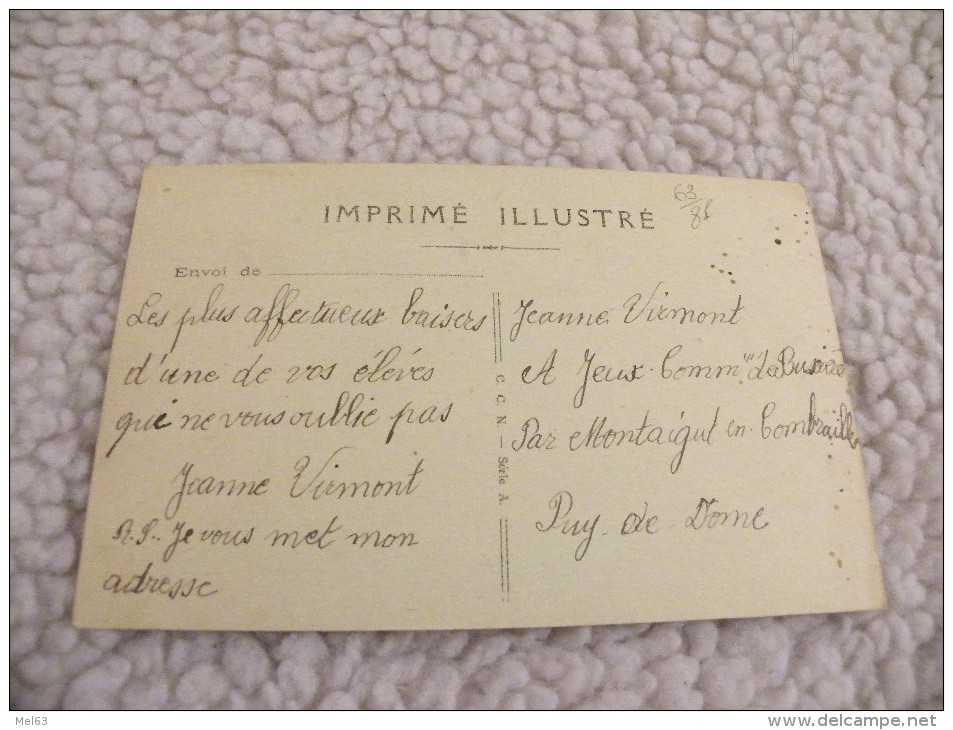 IMPRIMÉ ILLUSTRÉ
63/85
Envoi de
Les plus affectueux baisers
d'une de vos élévés
qui ne vous oublie pas
Jeanne Virmont
P.S. Je vous met mon
adresse
C. C. N. — Série A.
Jeanne Virmont
A Jeux Comm de
Par Montaigut en Combraille
Puy de Dome
Mel63
www.delcampe.net